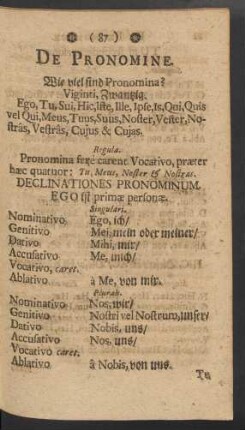 ( 87 )
DE PRONOMINE.
Wie viel sind Pronomina?
Viginti, Zwantzig.
Ego, Tu, Sui, Hic, Iste, Ille, Ipse, Is, Qui, Quis
vel Qui, Meus, Tuus, Suus, Noster, Vester, No-
strâs, Vestrâs, Cujus & Cujas.
Regula.
Pronomina fere carent Vocativo, præter
hæc quatuor: Tu, Meus, Noster & Nostras.
DECLINATIONES PRONOMINUM.
EGO ist primæ personæ.
Singulari.
Nominativo Ego, ich/
Genitivo Mei, mein oder meiner/
Dativo Mihi, mir/
Accusativo Me, mich/
Vocativo, caret.
Ablativo à Me, von mir.
Plurali.
Nominativo Nos, wir/
Genitivo Nostri vel Nostrum, unser/
Dativo Nobis, uns/
Accusativo Nos, uns/
Vocativo caret.
Ablativo à Nobis, von uns.
Tu